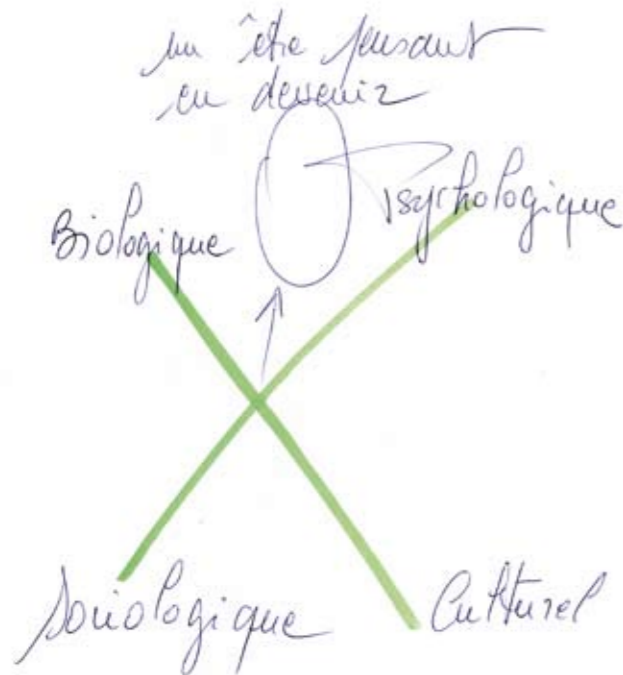 un être pensant
en devenir
Biologique
Psychologique
Sociologique
Culturel